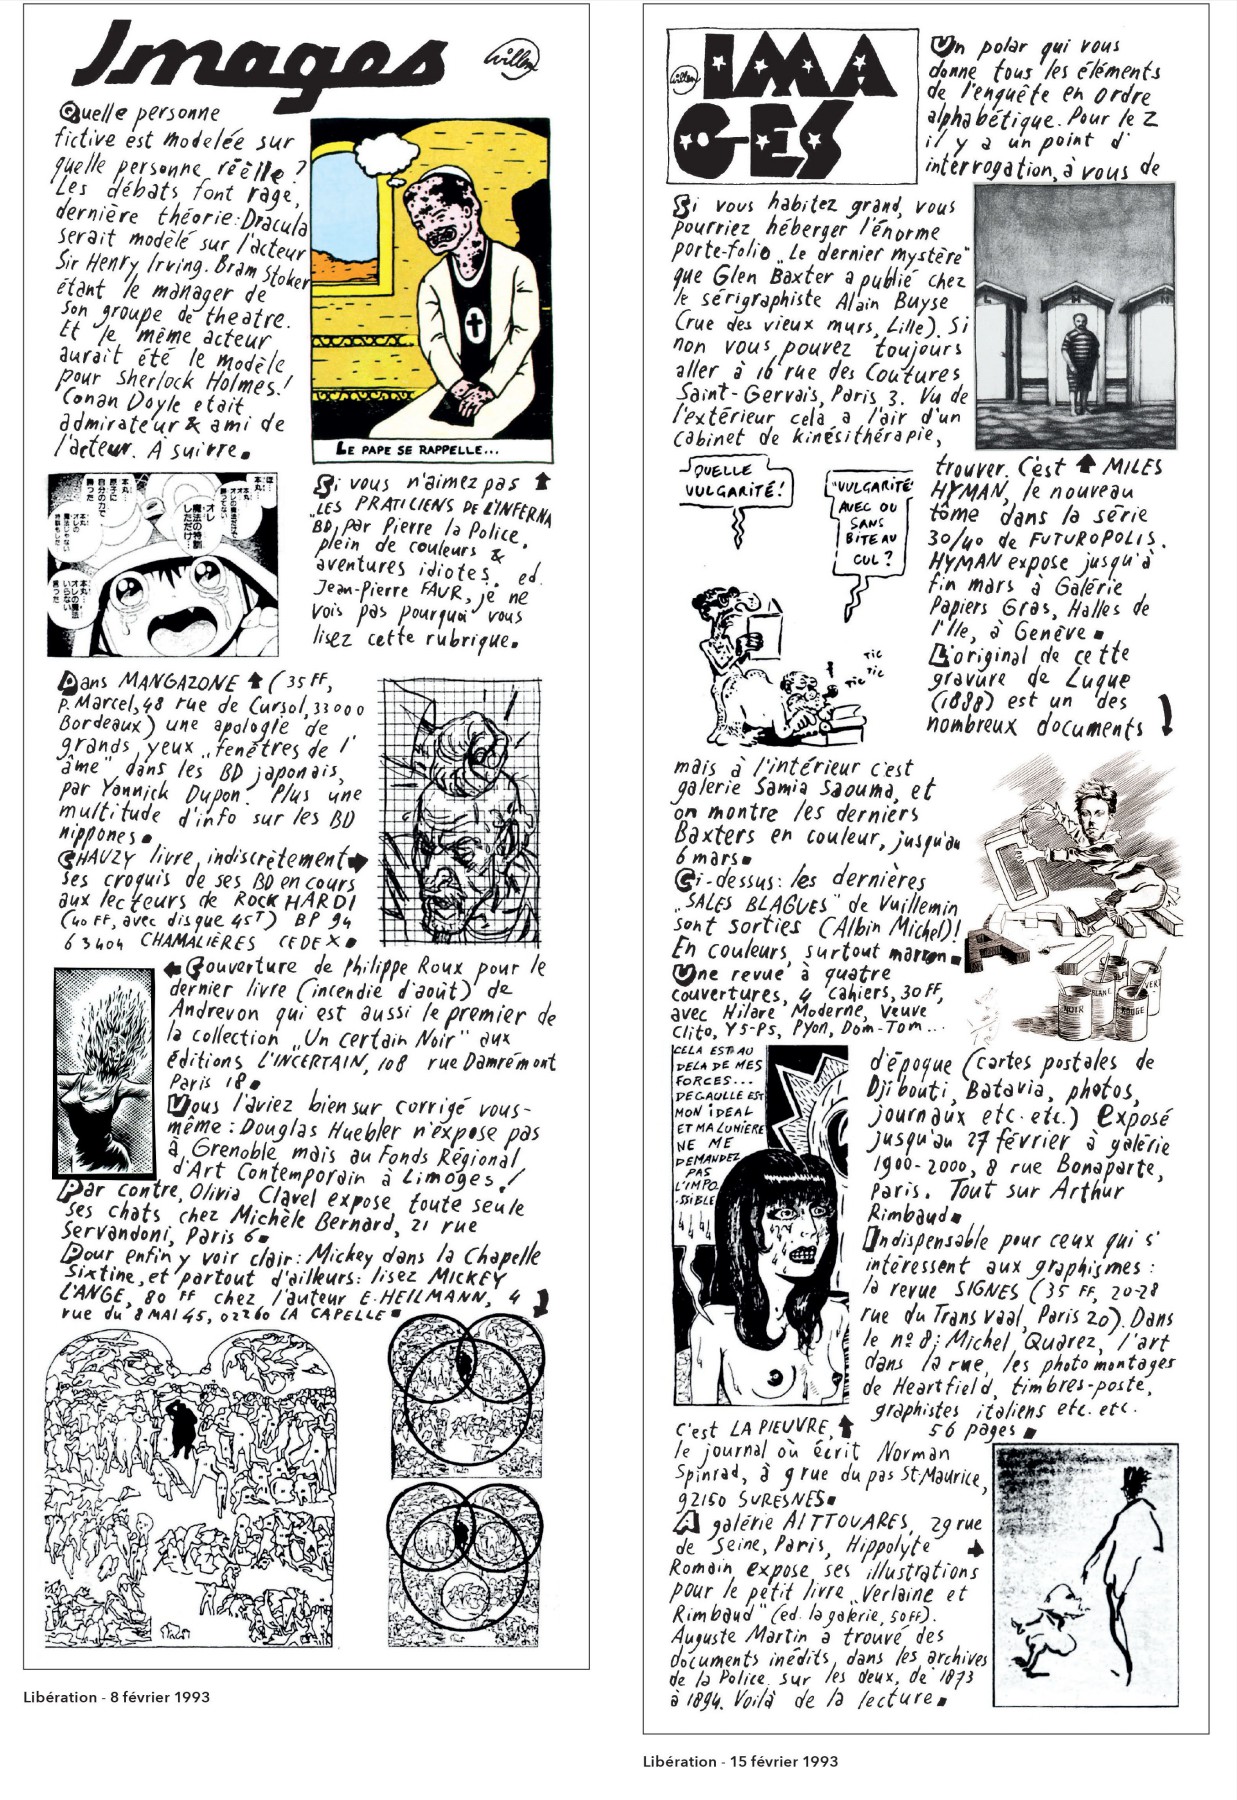 Images
Willem
Quelle personne
fictive est modelée sur
quelle personne réelle ?
Les débats font rage,
dernière théorie: Dracula
serait modèlé sur l'acteur
Sir Henry Irving. Bram Stoker
étant le manager de
son groupe de theatre.
Et le même acteur
aurait été le modèle
pour Sherlock Holmes!
Conan Doyle etait
admirateur & ami de
l'acteur. À suivre.
LE PAPE SE RAPPELLE...
Si vous n'aimez pas
„LES PRATICIENS DE L'INFERNA
BD, par Pierre la Police,
plein de couleurs &
aventures idiotes, ed.
Jean-Pierre FAUR, je ne
vois pas pourquoi vous
lisez cette rubrique.
Dans MANGAZONE (35 FF,
P. Marcel, 48 rue de Cursol, 33000
Bordeaux) une apologie de
grands yeux „fenêtres de l'
âme" dans les BD japonais,
par Yannick Dupon. Plus une
multitude d'info sur les BD
nippones.
CHAUZY livre, indiscrètement
ses croquis de ses BD en cours
aux lecteurs de ROCK HARDI
(40 FF, avec disque 45T) BP 94
63404 CHAMALIÈRES CEDEX.
Couverture de Philippe Roux pour le
dernier livre (incendie d'août) de
Andrevon qui est aussi le premier de
la collection „Un certain Noir" aux
éditions L'INCERTAIN, 108 rue Damrémont
Paris 18.
Vous l'aviez bien sur corrigé vous-
même : Douglas Huebler n'expose pas
à Grenoble mais au Fonds Régional
d'Art Contemporain à Limoges!
Par contre, Olivia Clavel expose toute seule
ses chats chez Michèle Bernard, 21 rue
Servandoni, Paris 6.
Pour enfin y voir clair : Mickey dans la Chapelle
Sixtine, et partout d'ailleurs: lisez MICKEY
L'ANGE, 80 FF chez l'auteur E. HEILMANN, 4
rue du 8 MAI 45, 02260 LA CAPELLE
Libération - 8 février 1993
Willem
IMA
GES
Un polar qui vous
donne tous les éléments
de l'enquête en ordre
alphabétique. Pour le Z
il y a un point d'
interrogation, à vous de
Si vous habitez grand, vous
pourriez héberger l'énorme
porte-folio „Le dernier mystère"
que Glen Baxter a publié chez
le sérigraphiste Alain Buyse
(rue des vieux murs, Lille). Si
non vous pouvez toujours
aller à 16 rue des Coutures
Saint-Gervais, Paris 3. Vu de
l'extérieur cela a l'air d'un
cabinet de kinésithérapie,
L M N
QUELLE
VULGARITÉ!
"VULGARITÉ"
AVEC OU
SANS
BITE AU
CUL ?
TIC
TIC
TIC TIC
trouver. C'est MILES
HYMAN, le nouveau
tôme dans la série
30/40 de FUTUROPOLIS.
HYMAN expose jusqu'à
fin mars à Galérie
Papiers Gras, Halles de
l'Ile, à Genève
L'original de cette
gravure de Luque
(1888) est un des
nombreux documents
mais à l'intérieur c'est
galerie Samia Saouma, et
on montre les derniers
Baxters en couleur, jusqu'au
6 mars.
Ci-dessus : les dernières
„SALES BLAGUES" de Vuillemin
sont sorties (Albin Michel)!
En couleurs, surtout marron.
Une revue à quatre
couvertures, 4 cahiers, 30 FF,
avec Hilare Moderne, Veuve
Clito, Y5-P5, Pyon, Dom-Tom...
A
NOIR
BLANC
ROUGE
VERT
CELA EST AU
DELA DE MES
FORCES...
DE GAULLE EST
MON IDEAL
ET MA LUMIERE
NE ME
DEMANDEZ
PAS
L'IMPO
-SSIBLE
d'époque (cartes postales de
Djibouti, Batavia, photos,
journaux etc. etc.) Exposé
jusqu'au 27 février à galérie
1900-2000, 8 rue Bonaparte,
Paris. Tout sur Arthur
Rimbaud.
Indispensable pour ceux qui s'
intéressent aux graphismes :
la revue SIGNES (35 FF, 20-28
rue du Transvaal, Paris 20). Dans
le nº 8 : Michel Quarez, l'art
dans la rue, les photomontages
de Heartfield, timbres-poste,
graphistes italiens etc. etc.
56 pages
C'est LA PIEUVRE,
le journal où écrit Norman
Spinrad, à 9 rue du pas St. Maurice,
92150 SURESNES.
A galérie AITTOUARES, 29 rue
de Seine, Paris, Hippolyte
Romain expose ses illustrations
pour le petit livre „Verlaine et
Rimbaud" (ed. la galerie, 50 FF).
Auguste Martin a trouvé des
documents inédits, dans les archives
de la Police sur les deux, de 1873
à 1894. Voilà de la lecture.
Libération - 15 février 1993